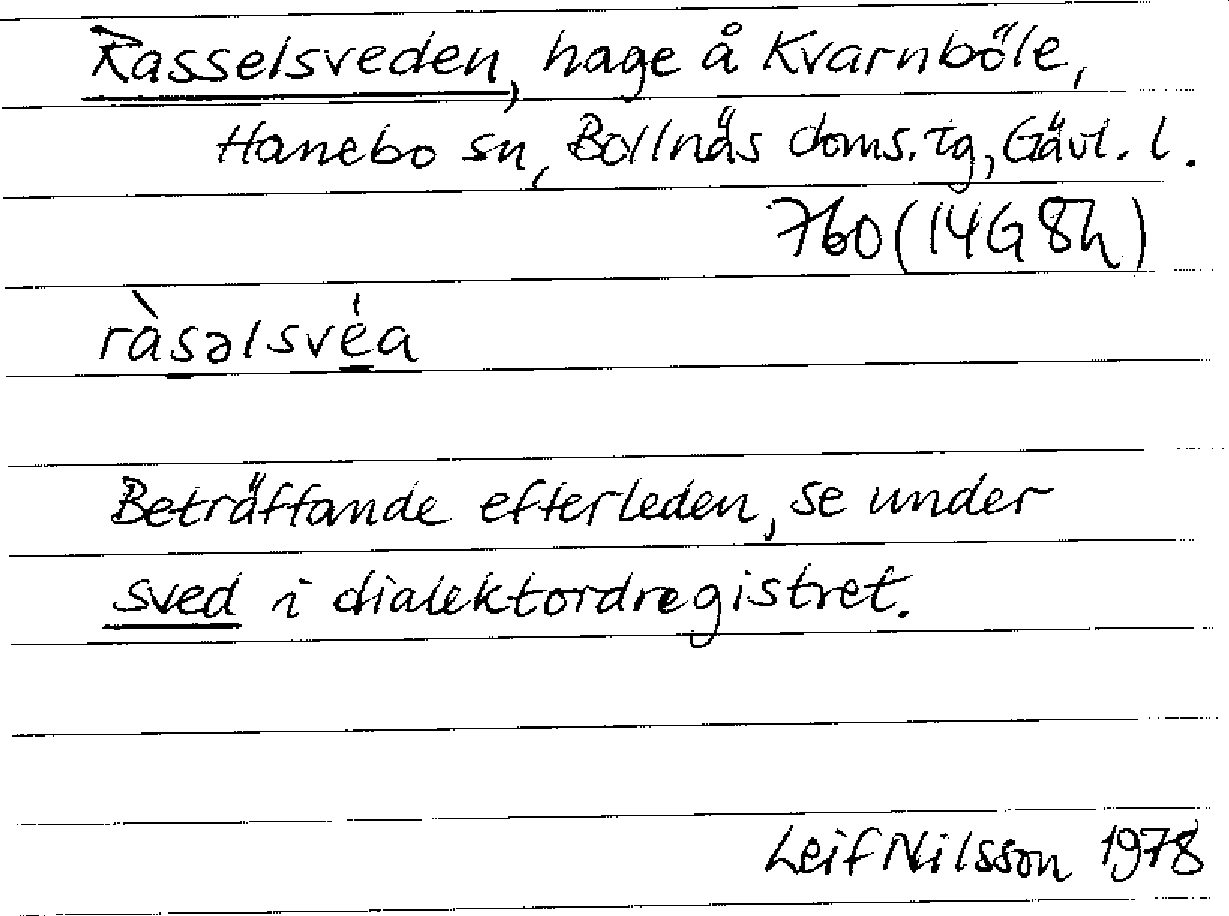 Rasselsveden, hage å Kvarnböle,
Hanebo sn, Bollnäs doms. tg, Gävl. l.
760 (14G 8h)
ràsəlsvéa
Beträffande efterleden, se under
sved i dialektordregistret.
Leif Nilsson 1978